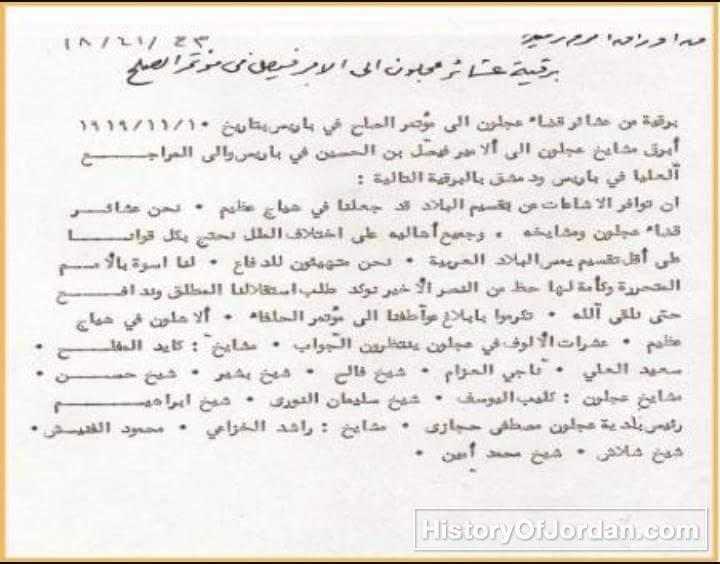 من اوراق
١٨/٤١/٤٣
برقية عشائر عجلون الى الامير فيصل في مؤتمر الصلح
برقية من عشائر قضاء عجلون الى مؤتمر الصلح في باريس بتاريخ ١٩١٩/١١/١٠
أبرق مشايخ عجلون الى ألامير فيصل بن الحسين في باريس والى المراجع
ألعليا في باريس ودمشق بالبرقية التالية :
ان توافر الاشاعات عن تقسيم البلاد قد جعلنا في هياج عظيم • نحن عشائر
قضاء عجلون ومشايخه . وجميع أهاليه على اختلاف الملل نحتج بكل قوانا
على أقل تقسيم يمس البلاد العربية • نحن متهيئون للدفاع • لنا اسوة بالأمم
المتحررة وكأمة لها حظ من النصر الأخير نوكد طلب استقلالنا المطلق وندافع
حتى نلقى ألله • تكرموا بابلاغ عواطفنا الى مؤتمر الحلفاء • ألاهلون في هياج
عظيم • عشرات الألوف في عجلون ينتظرون الجواب • مشايخ : كايد المفلح •
سعيد العلي • ناجي العزام • شيخ فالح • شيخ بشير • شيخ حسن •
مشايخ عجلون : كليب اليوسف • شيخ سليمان النورى • شيخ ابراهيم
رئيس بلدية عجلون مصطفى حجازى • مشايخ : راشد الخزاعي • محمود الفنيش •
شيخ شلاش • شيخ محمد أمين •
HistoryOfJordan.com